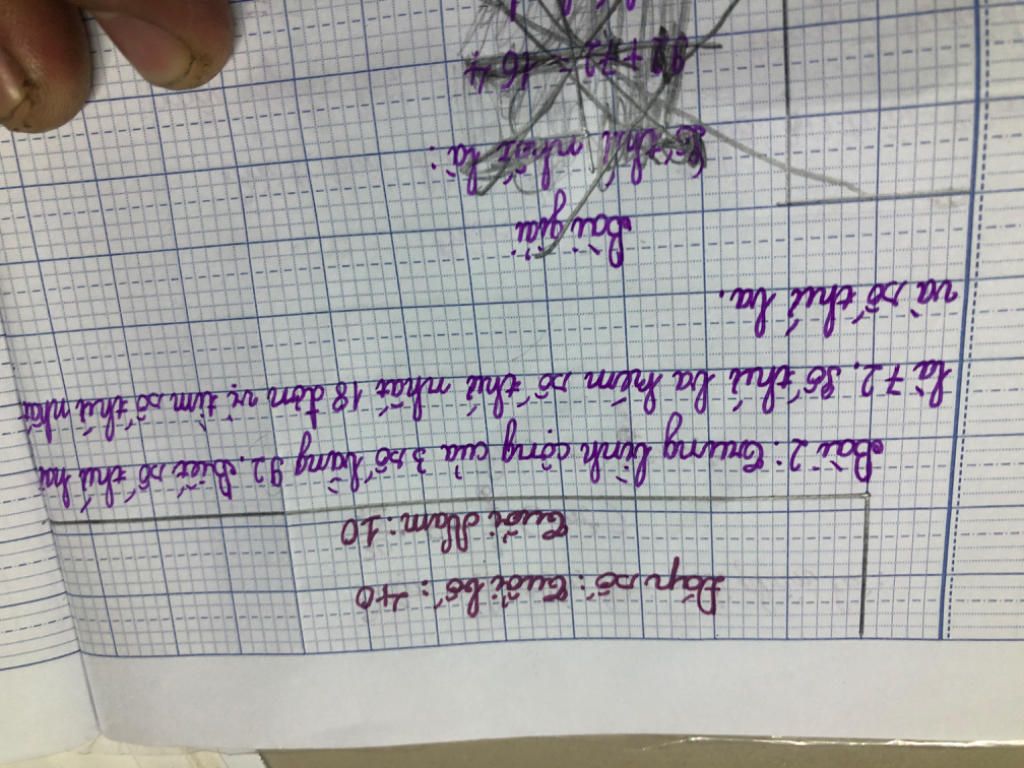 Đáp số: Tuổi bố: 40
Tuổi Nam: 10
Bài 2: Trung bình cộng của 3 số bằng 92. Biết số thứ hai
là 72. Số thứ ba kém số thứ nhất 18 đơn vị tìm số thứ nhất
và số thứ ba.
Bài giải
Số thứ nhất là:
92 + 72 = 164